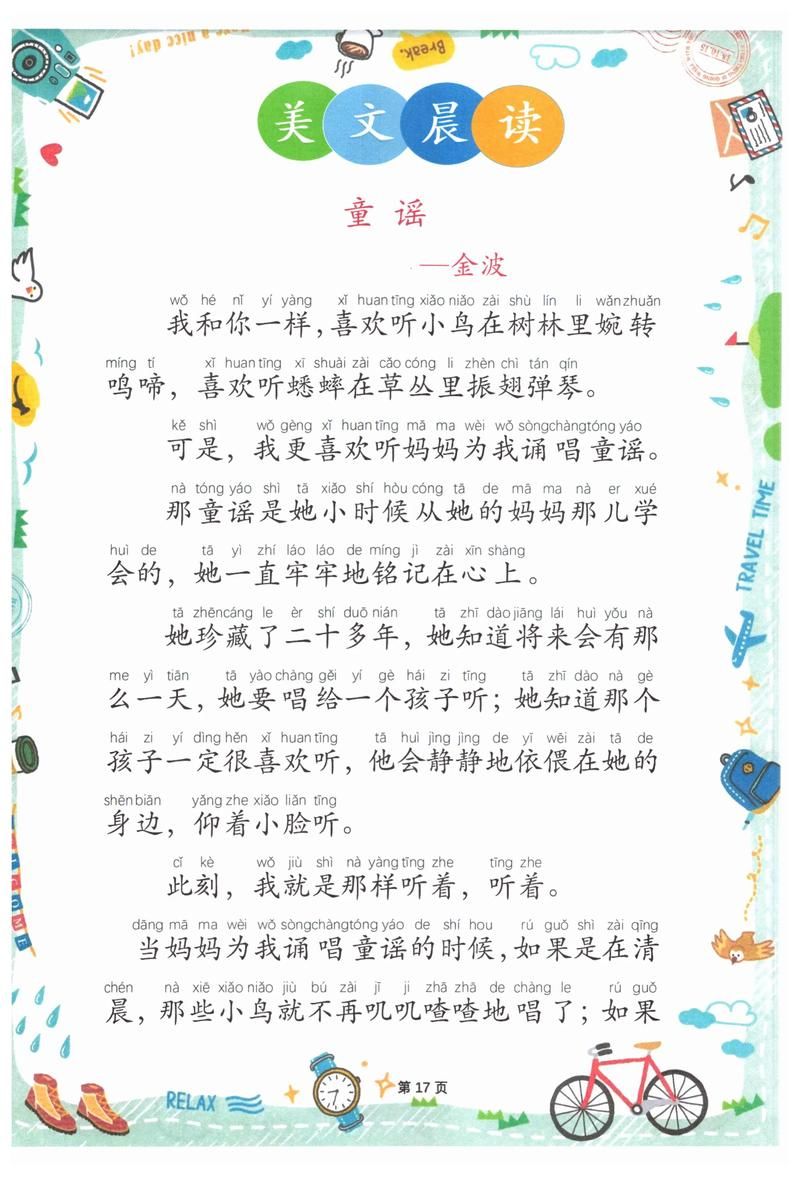 Have a nice day!
Break.
美文晨读
童谣
——金波
wǒ hé nǐ yí yàng xǐ huan tīng xiǎo niǎo zài shù lín li wǎn zhuǎn
我和你一样，喜欢听小鸟在树林里婉转
míng tí xǐ huan tīng xī shuài zài cǎo cóng li zhèn chì tán qín
鸣啼，喜欢听蟋蟀在草丛里振翅弹琴。
kě shì wǒ gèng xǐ huan tīng mā ma wèi wǒ sòng chàng tóng yáo
可是，我更喜欢听妈妈为我诵唱童谣。
nà tóng yáo shì tā xiǎo shí hòu cóng tā de mā ma nà er xué
那童谣是她小时候从她的妈妈那儿学
huì de tā yì zhí láo láo de míng jì zài xīn shàng
会的，她一直牢牢地铭记在心上。
tā zhēn cáng le èr shí duō nián tā zhī dào jiāng lái huì yǒu nà
她珍藏了二十多年，她知道将来会有那
me yì tiān tā yào chàng gěi yí gè hái zi tīng tā zhī dào nà gè
么一天，她要唱给一个孩子听；她知道那个
hái zi yí dìng hěn xǐ huan tīng tā huì jìng jìng de yī wēi zài tā de
孩子一定很喜欢听，他会静静地依偎在她的
shēn biān yǎng zhe xiǎo liǎn tīng
身边，仰着小脸听。
cǐ kè wǒ jiù shì nà yàng tīng zhe tīng zhe
此刻，我就是那样听着，听着。
dāng mā ma wèi wǒ sòng chàng tóng yáo de shí hou rú guǒ shì zài qīng
当妈妈为我诵唱童谣的时候，如果是在清
chén nà xiē xiǎo niǎo jiù bú zài jī ji zhā zhā de chàng le rú guǒ
晨，那些小鸟就不再叽叽喳喳地唱了；如果
TRAVEL TIME
RELAX
第 17 页